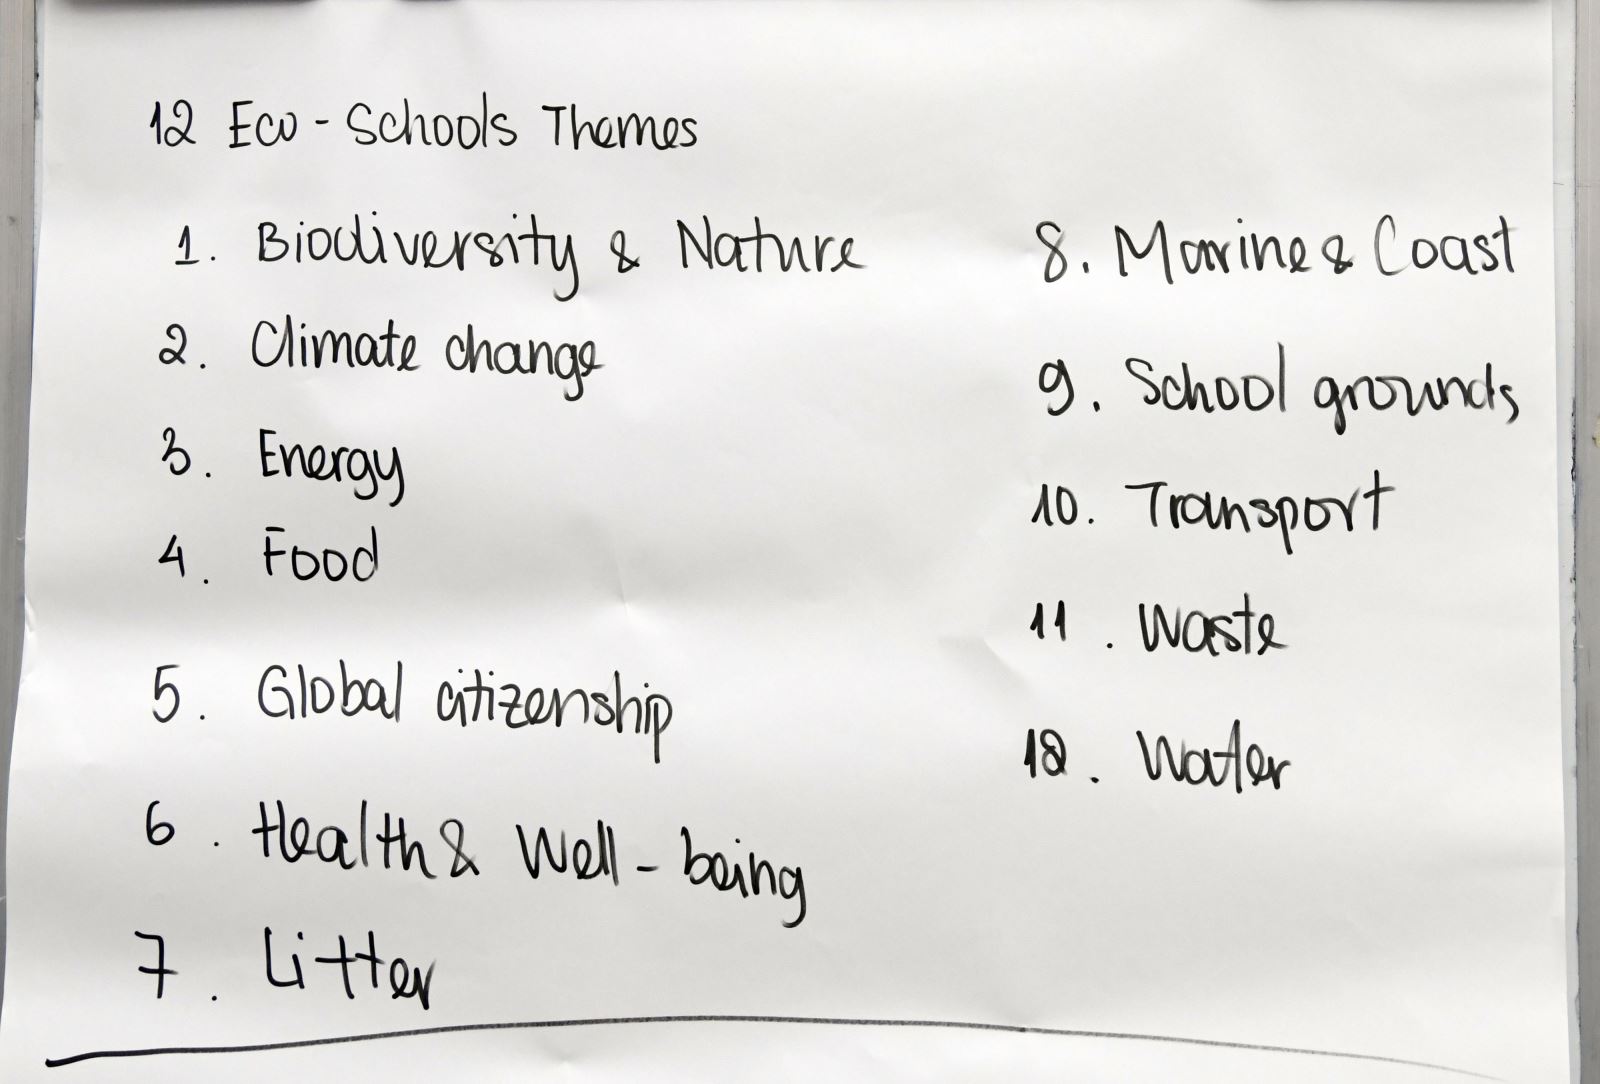 12 Eco - Schools Themes
1. Biodiversity & Nature
2. Climate change
3. Energy
4. Food
5. Global citizenship
6. Health & Well - being
7. Litter
8. Marine & Coast
9. School grounds
10. Transport
11. Waste
12. Water